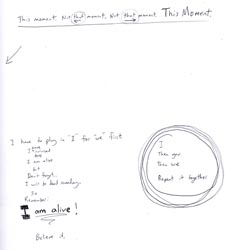 This moment. Not that moment. Not that moment. This Moment.
I have to plug in "I" for "we" first
I am alive
but
Don't forget
I will be dead someday.
So
Remember:
I am alive!
Believe it.
I
Then you
Then we
Repeat it together